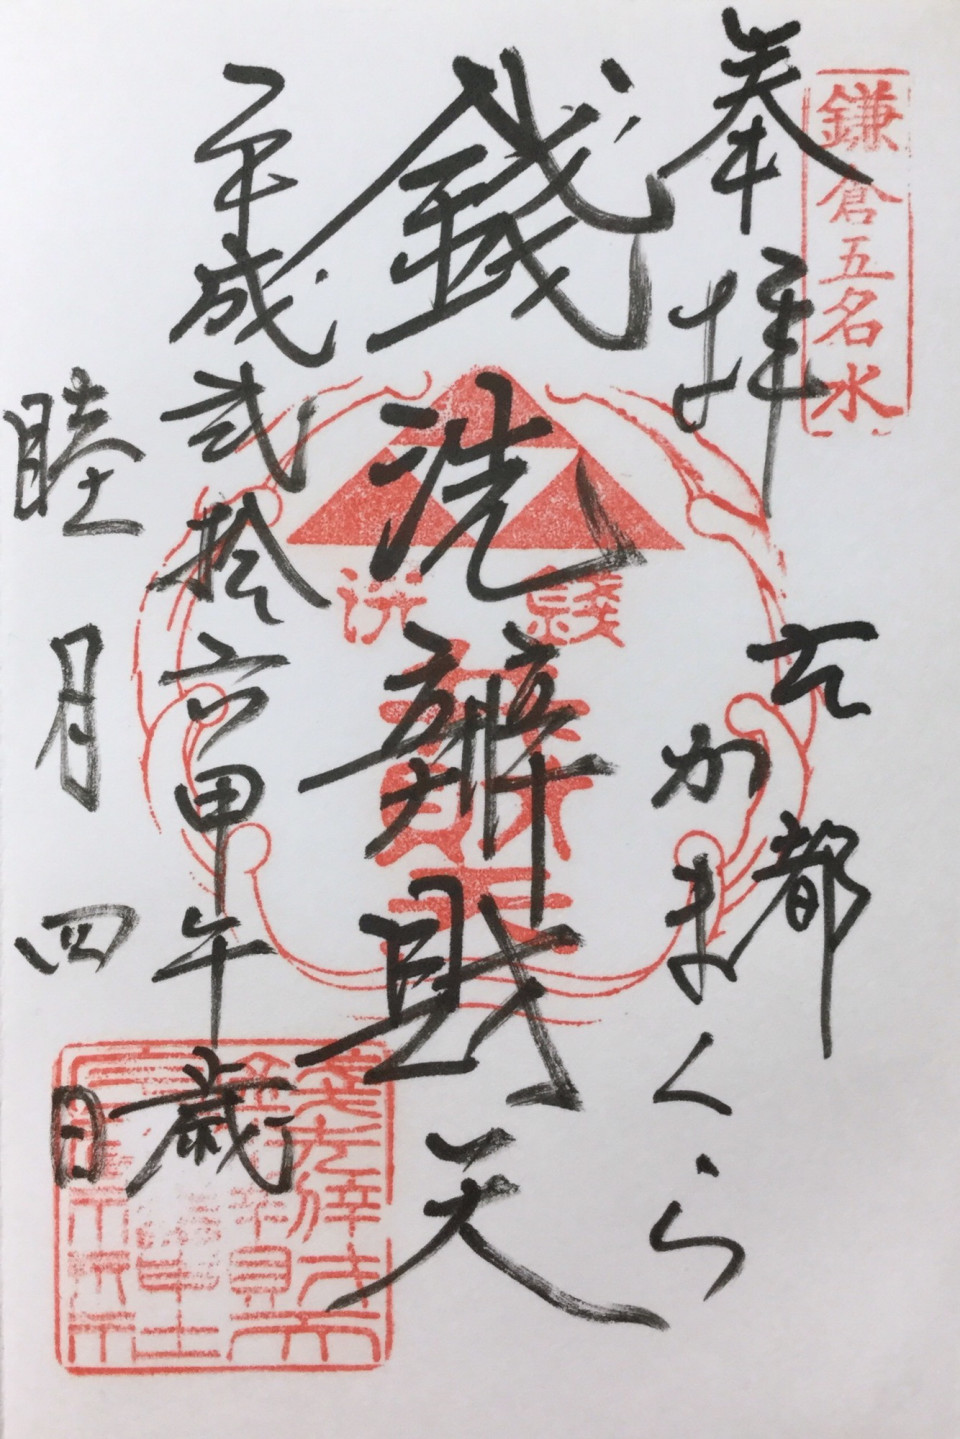 鎌倉五名水
奉拝
古都
かまくら
銭洗辨財天
平成弐拾六甲午歳
睦月四日
銭洗